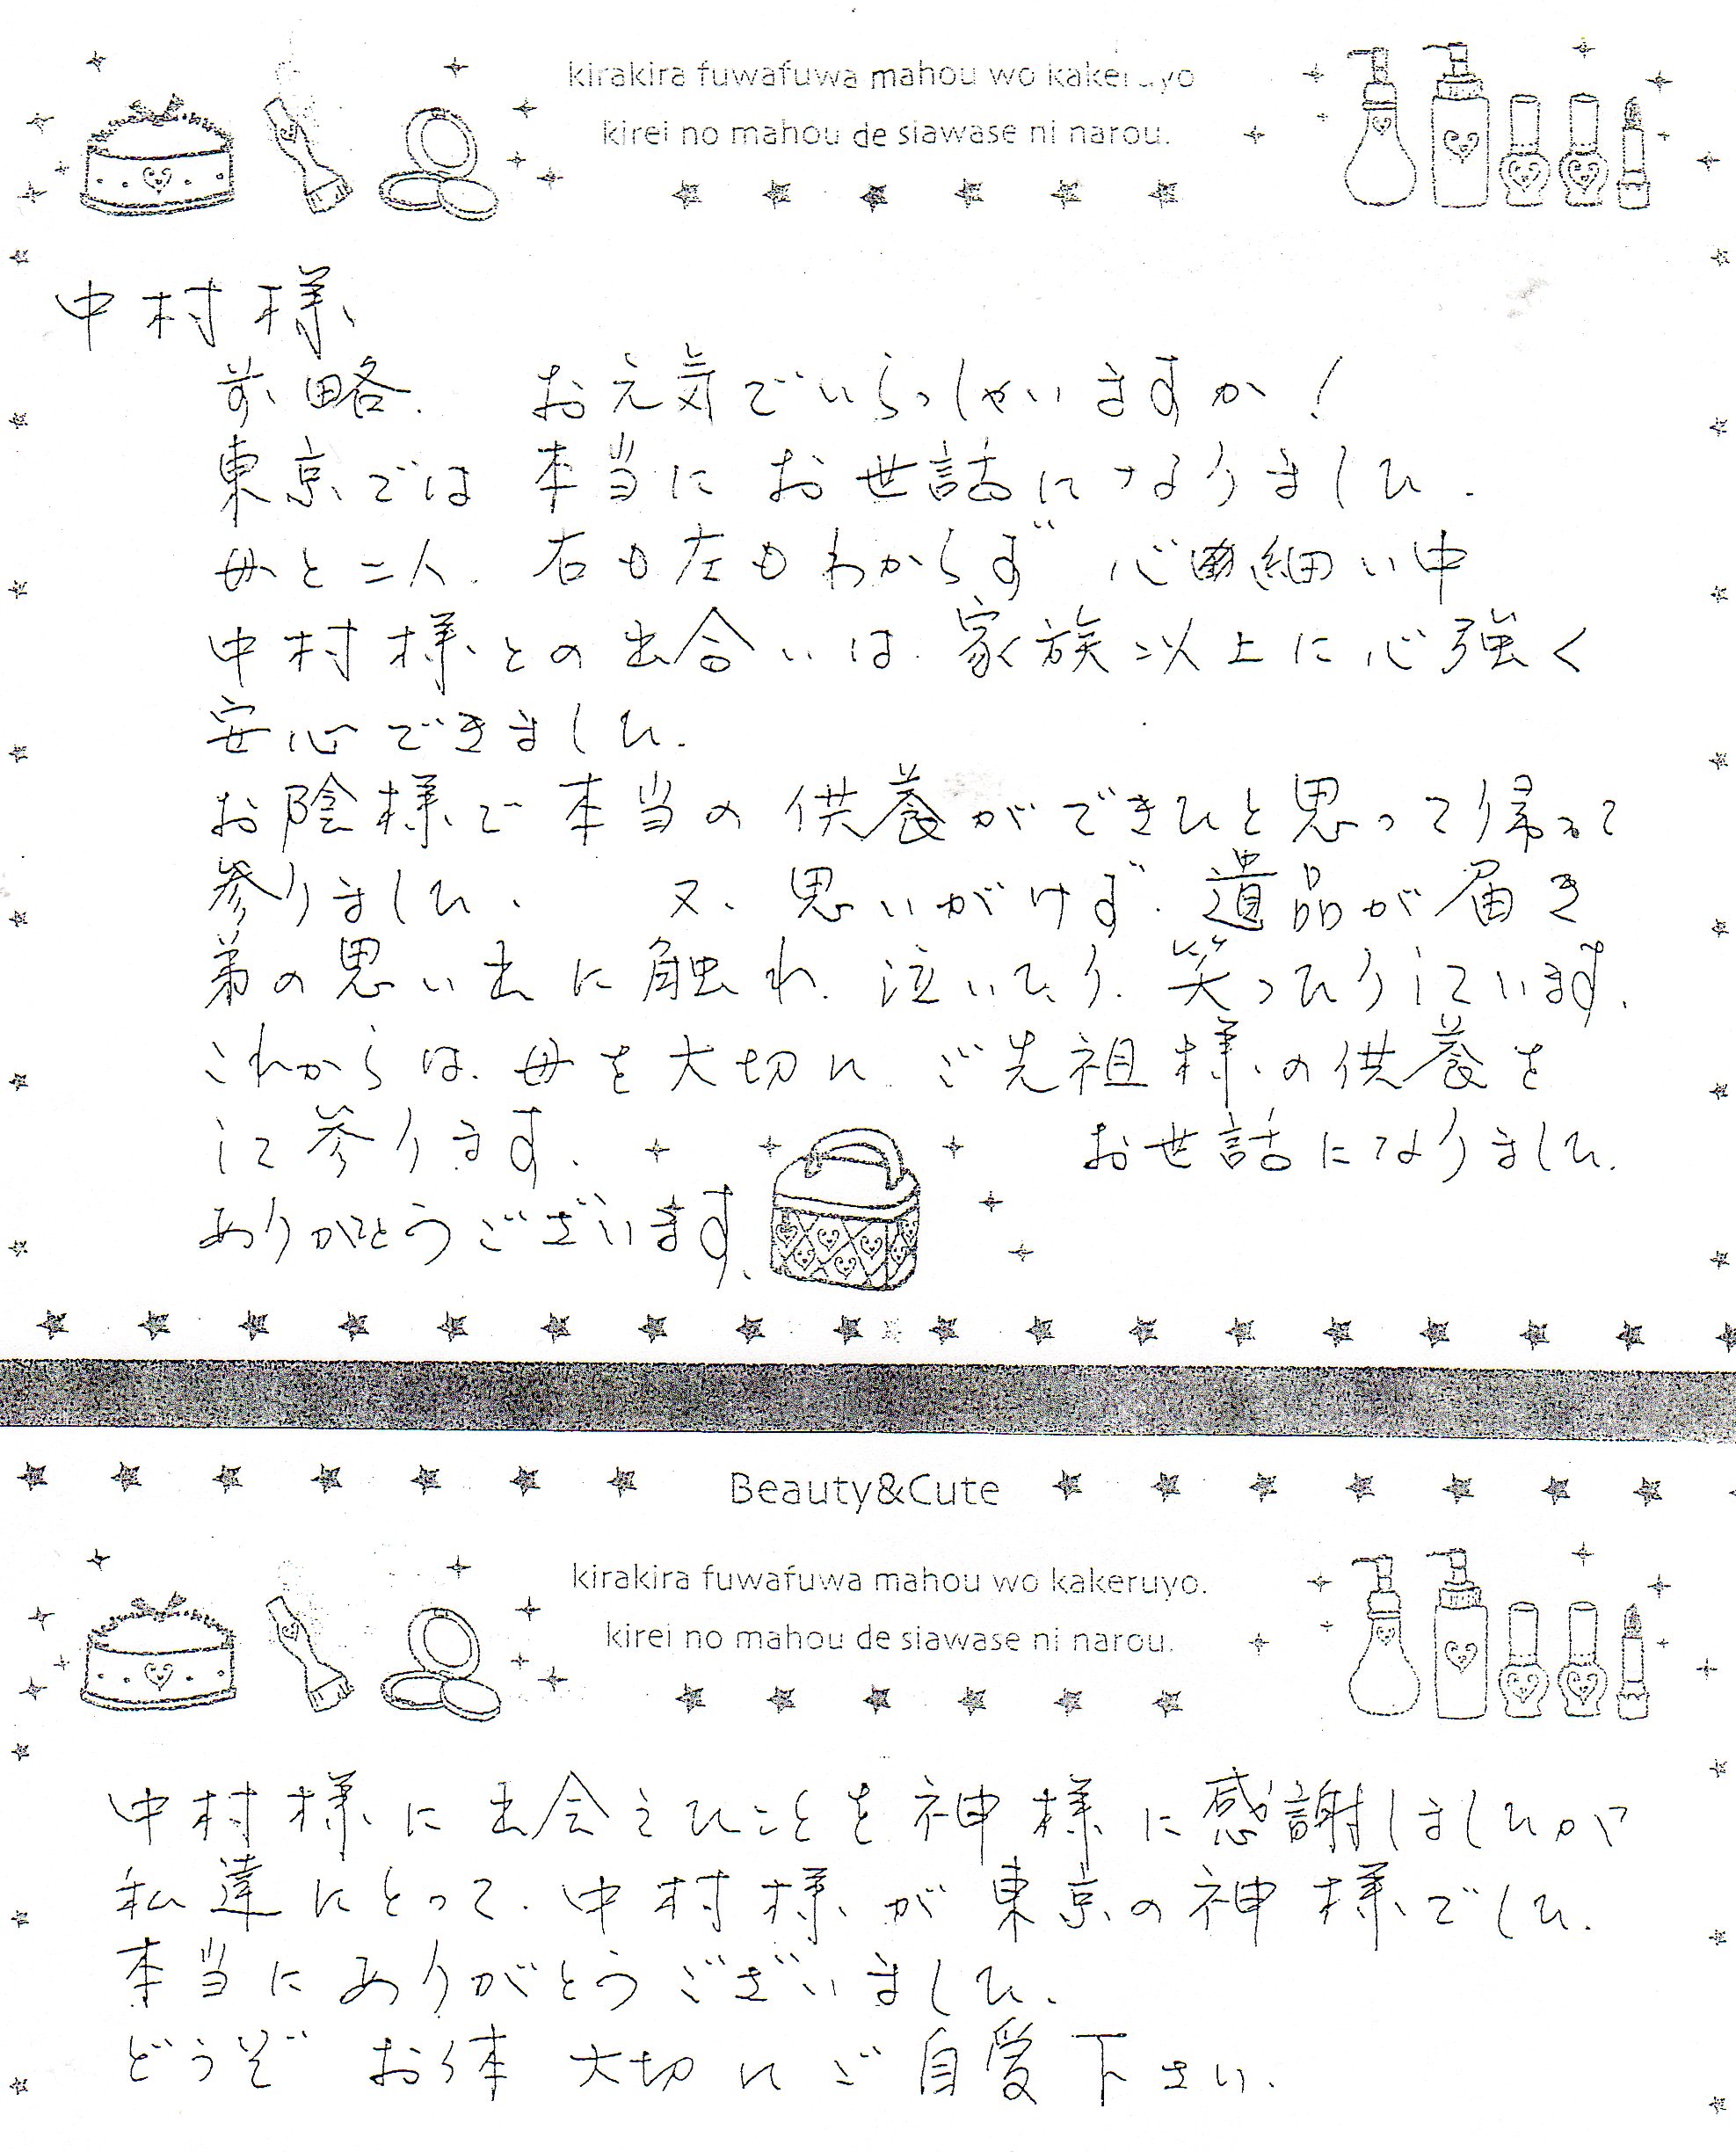 kirakira fuwafuwa mahou wo kakeruyo
kirei no mahou de siawase ni narou.
中村様
前略. お元気でいらっしゃいますか!
東京では 本当に お世話になりました.
母と二人. 右も左もわからず 心細い中
中村様との出合いは. 家族以上に心強く
安心できました.
お陰様で本当の供養ができたと思って帰って
参りました、 又、思いがけず. 遺品が届き
弟の思い出に触れ. 泣いたり. 笑ったりしています.
これからは. 母を大切に. ご先祖様の供養を
して参ります. お世話になりました.
ありがとうございます.
Beauty&Cute
kirakira fuwafuwa mahou wo kakeruyo.
kirei no mahou de siawase ni narou.
中村様に出会えたことを神様に感謝しましたが
私達にとって. 中村様が東京の神様でした.
本当にありがとうございました.
どうぞ お体 大切にご自愛下さい.